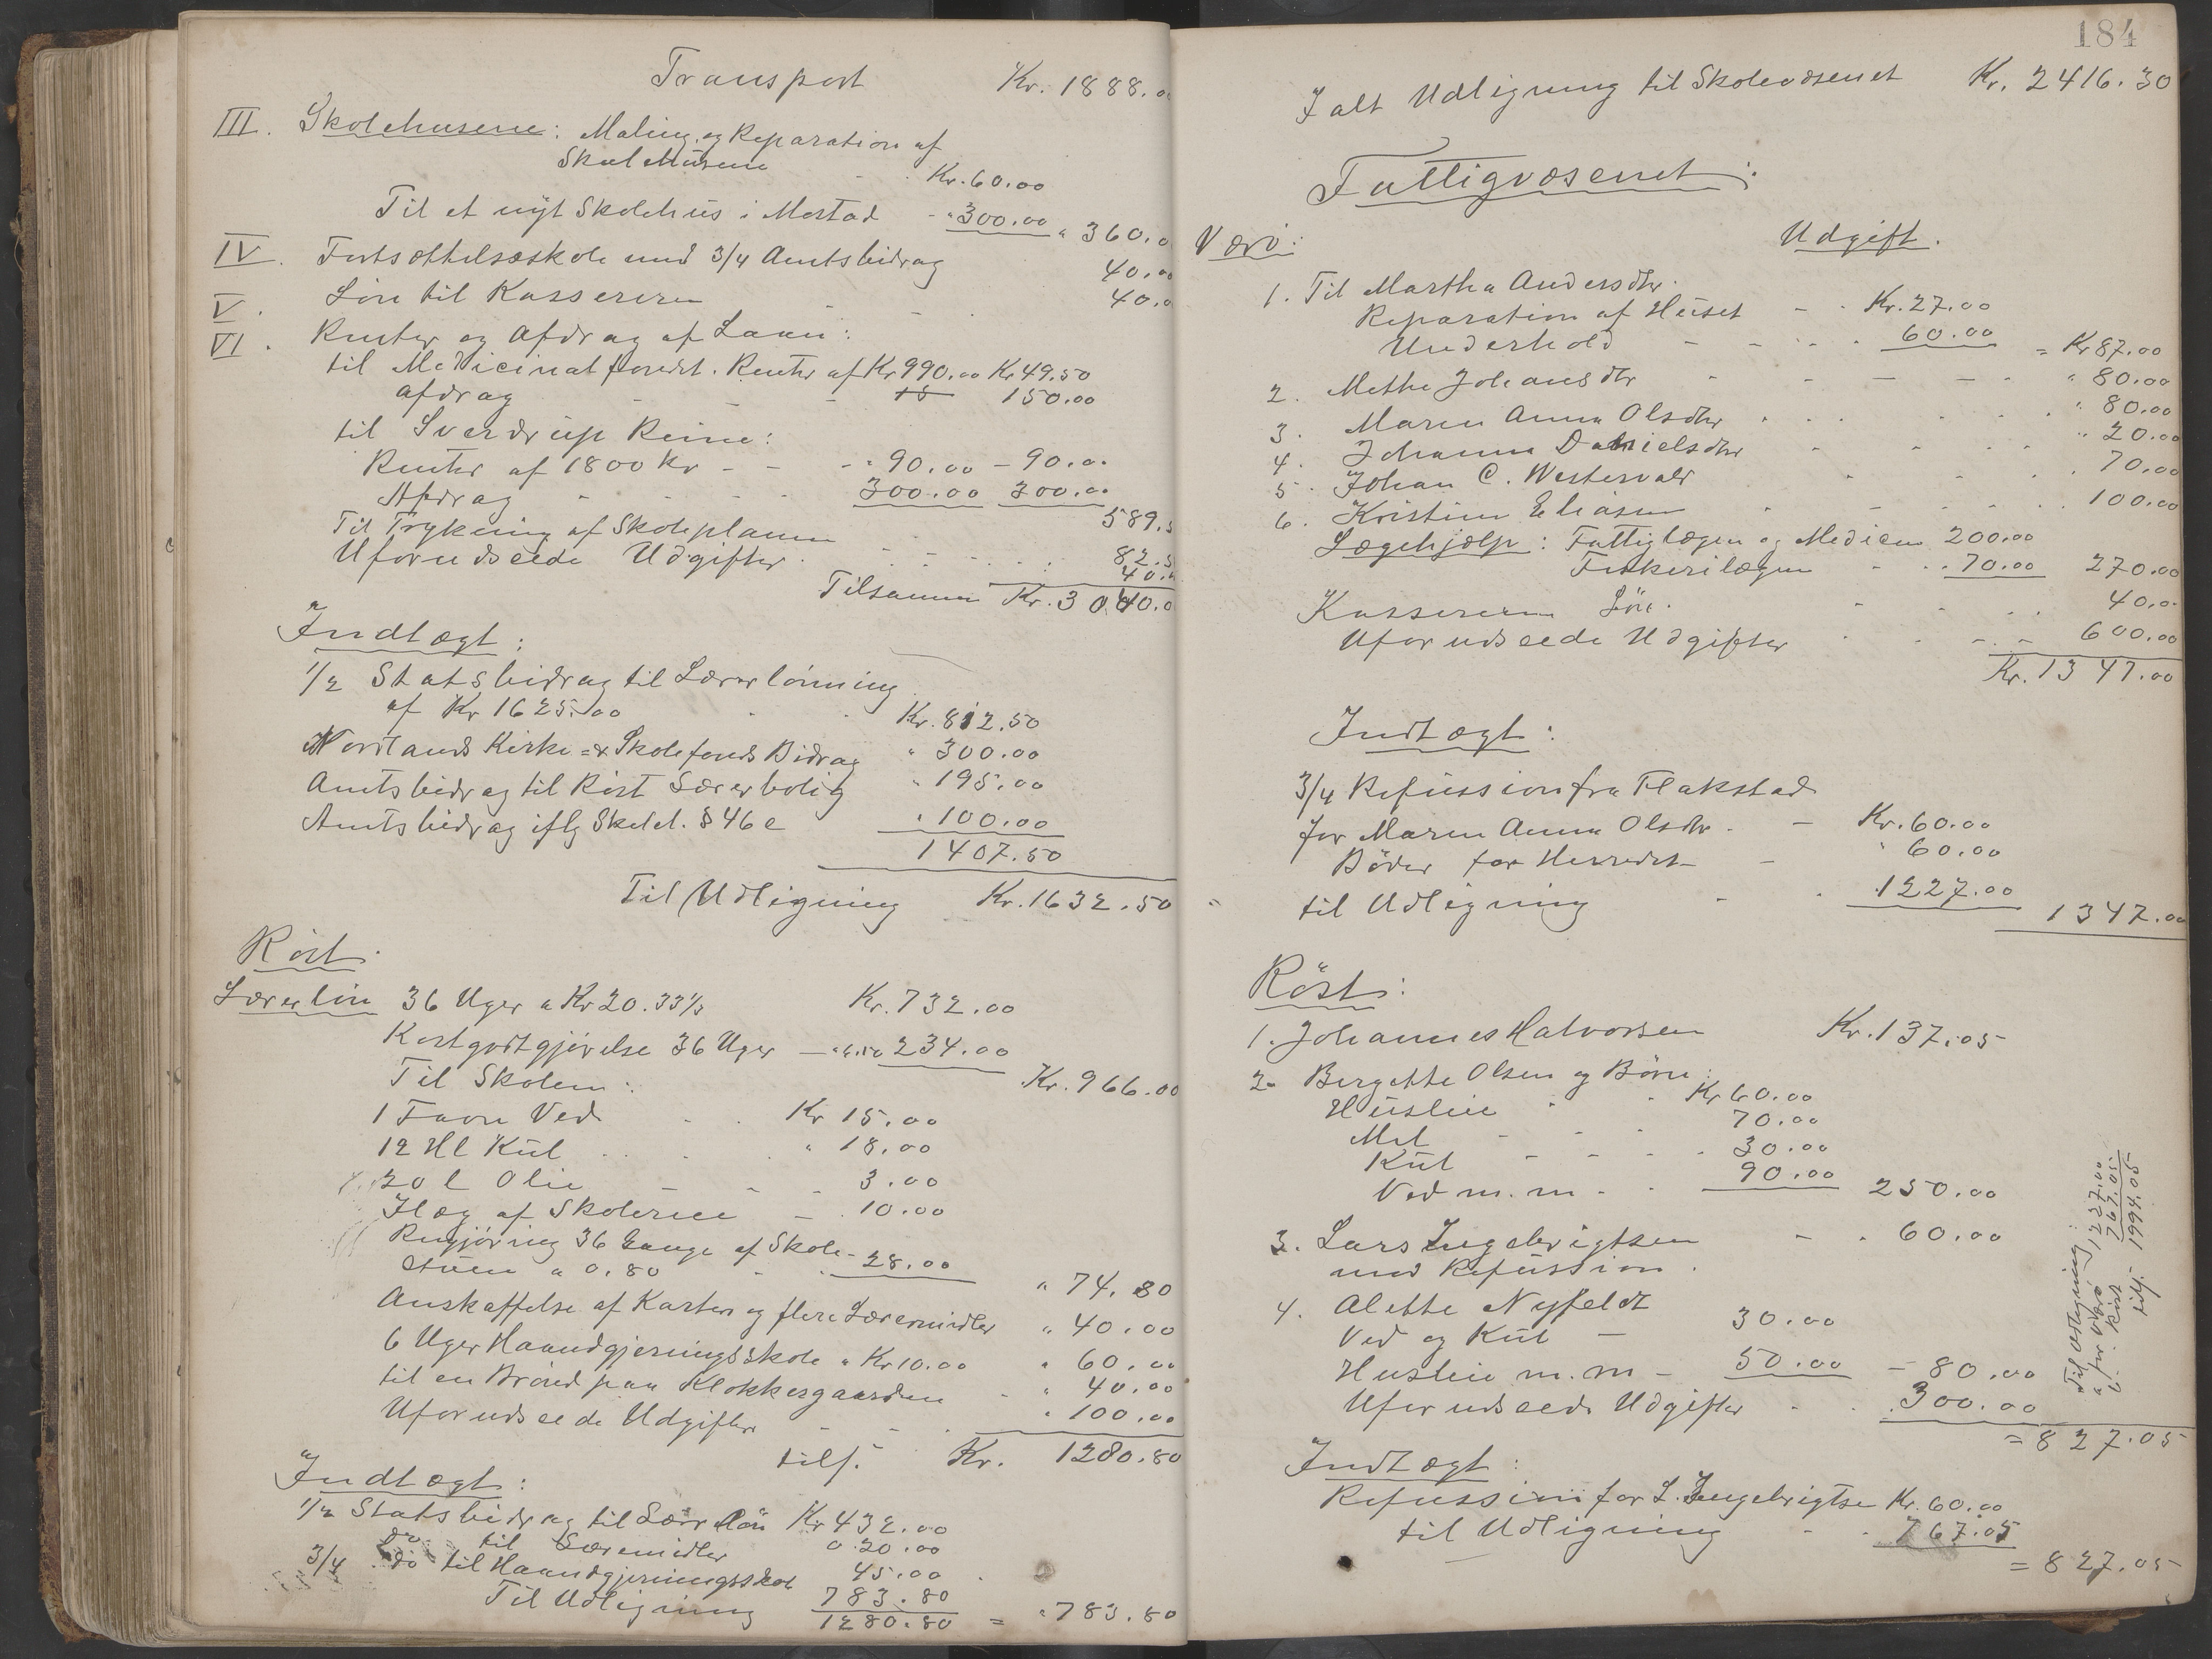 Transport Kr. 1888.0
III. Skolehusene: Maling og Reparation af
Skolehusene Kr. 60.00
Til et nyt Skolehus i Mostad - " 300.00 " 360.0
IV. Fortsættelsesskole med 3/4 Amtsbidrag 40.00
V. Løn til Kassereren 40.0
VI. Renter og Afdrag af Laan:
til Medicinalfondet. Renter af Kr 990.00 Kr 49.50
Afdrag 150.00
til Sverdrup Reine:
Renter af 1800 Kr - - - " 90.00 - 90.00
Afdrag 300.00 300.00
589.5
Til Trykning af Skoleplanen 82.5
Uforudseede Udgifter 40.0
Tilsammen Kr. 3040.0
Indtægt:
1/2 Statsbidrag til Lærerlønning
af Kr 1625.00 Kr. 812.50
Nordlands Kirke = & Skolefonds Bidrag " 300.00
Amtsbidrag til Röst Lærerbolig " 195.00
Amtsbidrag iflg Skolel. § 46 e " 100.00
1407.50
Til Udligning Kr. 1632.50
Röst.
Lærerlön 36 Uger a Kr 20.33 1/3 Kr. 732.00
Kostgodtgjörelse 36 Uger - " 6.50 234.00
Kr. 966.00
Til Skolen:
1 Favn Ved Kr 15.00
12 Hl Kul " 18.00
20 l Olie 3.00
Ilæg af Skoleriet 10.00
Rengjöring 36 Gange af Skole-
stuen a 0.80 28.00 " 74.80
Anskaffelse af Karter og flere Læremidler " 40.00
6 Uger Haandgjerningsskole a Kr 10.00 " 60.00
til en Brönd paa Klokkergaarden " 40.00
Uforudseede Udgifter " 100.00
tils. Kr. 1280.80
Indtægt:
1/2 Statsbidrag til Lærerlön Kr 432.00
do til Læremidler " 20.00
3/4 do til Haandgjerningsskole 45.00
Til Udligning 783.80 = " 783.80
1280.80
184
Ialt Udligning til Skolevæsenet Kr. 2416.30
Fattigvæsenet:
Værö: Udgift.
1. Til Martha Andersdtr.
Reparation af Huset - Kr. 27.00
Underhold 60.00 = Kr 87.00
2. Methe Johansdtr " 80.00
3. Maren Anna Olsdtr " 80.00
4. Johanna Danielsdtr " 20.00
5. Johan C. Westervald 70.00
6. Kristine Eliasen 100.00
Lægehjælp: Fattiglægen og Medicin 200.00
Fiskerilægen 70.00 270.00
Kassereren Lön. 40.0
Uforudseede Udgifter 600.00
Kr. 1347.00
Indtægt:
3/4 Refussion fra Flakstad
for Maren Anna Olsdtr. - Kr. 60.00
Böder for Herredet - " 60.00
til Udligning 1227.00 1347.00
Röst:
1. Johannes Halvorsen Kr. 137.05
2. Bergette Olsen og Börn:
Husleie Kr 60.00
Mel 70.00
Kul 30.00
Ved m.m. 90.00 250.00
3. Lars Ingebrigtsen - 60.00
mod Refussion.
4. Alette Nyfeldt
Ved og Kul - 30.00
Husleie m.m - 50.00 - 80.00
Uforudseede Udgifter 300.00
= 827.05
Indtægt:
Refussion for L. Ingebrigtsen Kr. 60.00
til Udligning 767.05
= 827.05
Til Udligning:
for Værö 1227.00
" Röst 767.05
tils. 1994.05